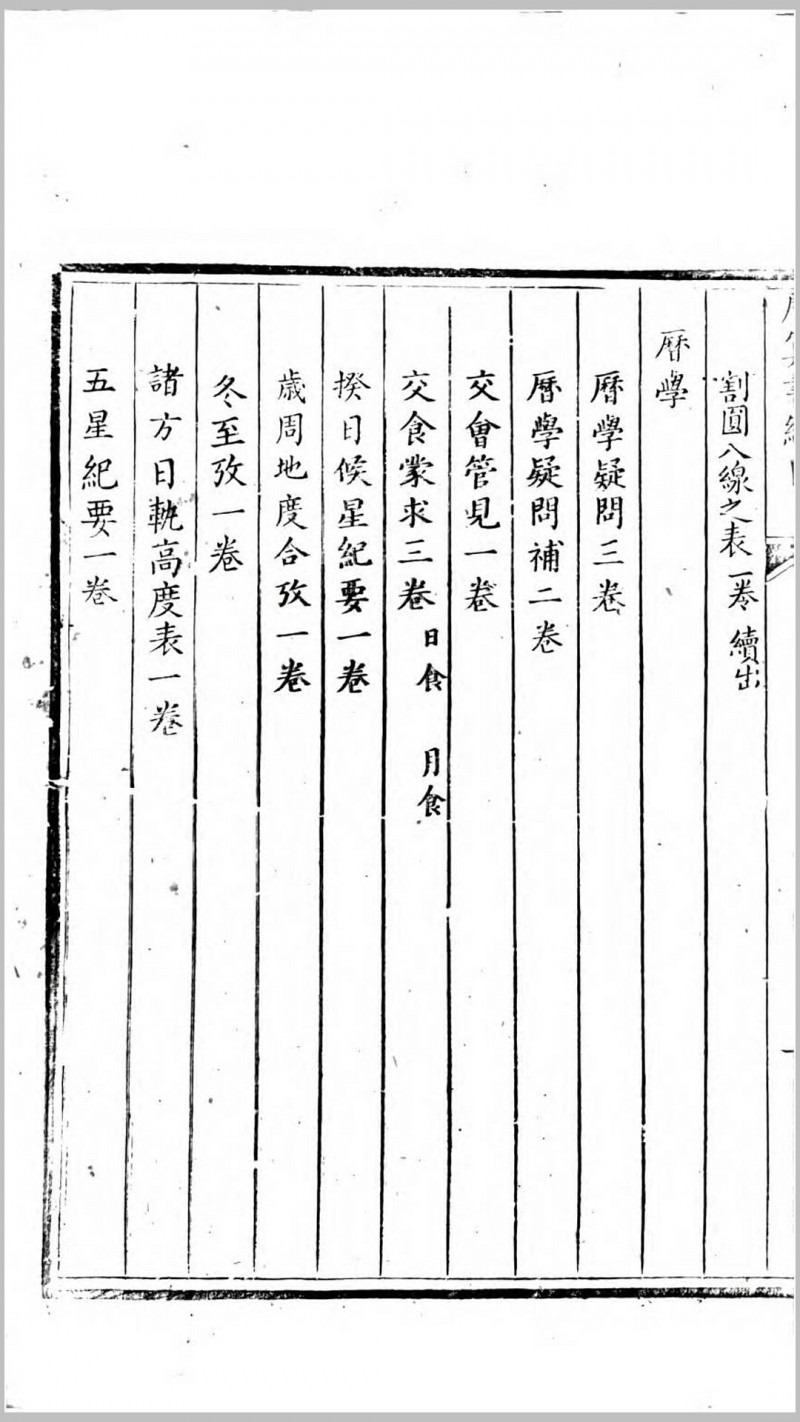 割圓八線之表一卷 續出
曆學
曆學疑問三卷
曆學疑問補二卷
交會管見一卷
交食蒙求三卷 日食 月食
揆日候星紀要一卷
歲周地度合攷一卷
冬至攷一卷
諸方日軌高度表一卷
五星紀要一卷